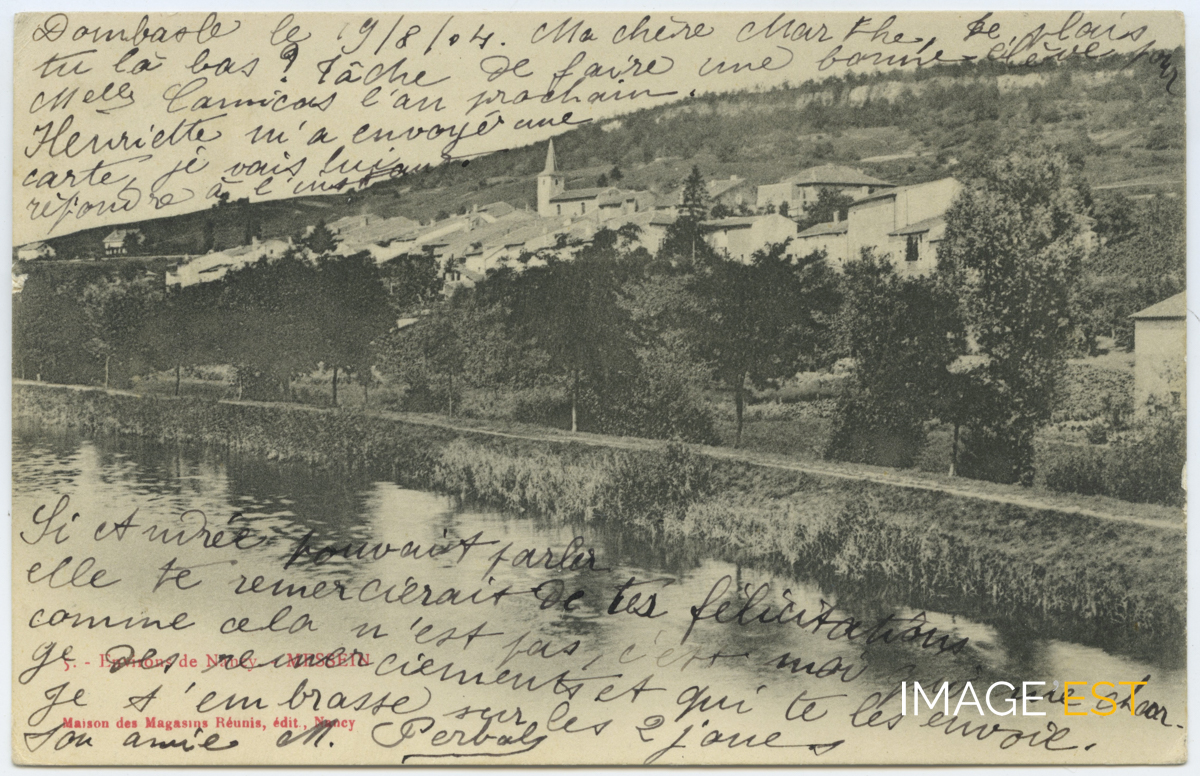 Dombasle le 19/8/04. Ma chère Marthe, te plais
tu là bas? tâche de faire une bonne élève pour
Melle l'an prochain.
Henriette m'a envoyé une
carte, je vais lui
répondre à l'instant
Si Andrée pouvait parler
elle te remercierait de tes félicitations
comme cela n'est pas, c'est moi qui me char-
ge des remerciements et qui te les envoie.
5. - Environs de Nancy - MESSEIN
Je t'embrasse sur les 2 joues
Maison des Magasins Réunis, édit., Nancy
Ton amie M.
IMAGE'EST